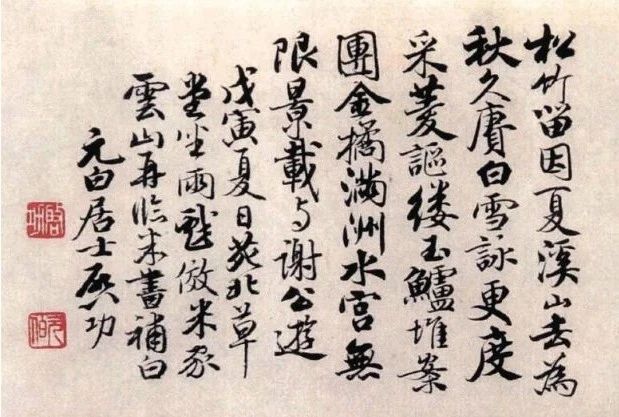 松竹留因夏溪山去為
秋久賡白雪詠更度
采菱謳縷玉鱸堆案
團金橘滿洲水宮無
限景載与謝公遊
戊寅夏日苑北草
堂坐雨戲倣米家
雲山再臨米書補白
元白居士啟功
啟功
元白